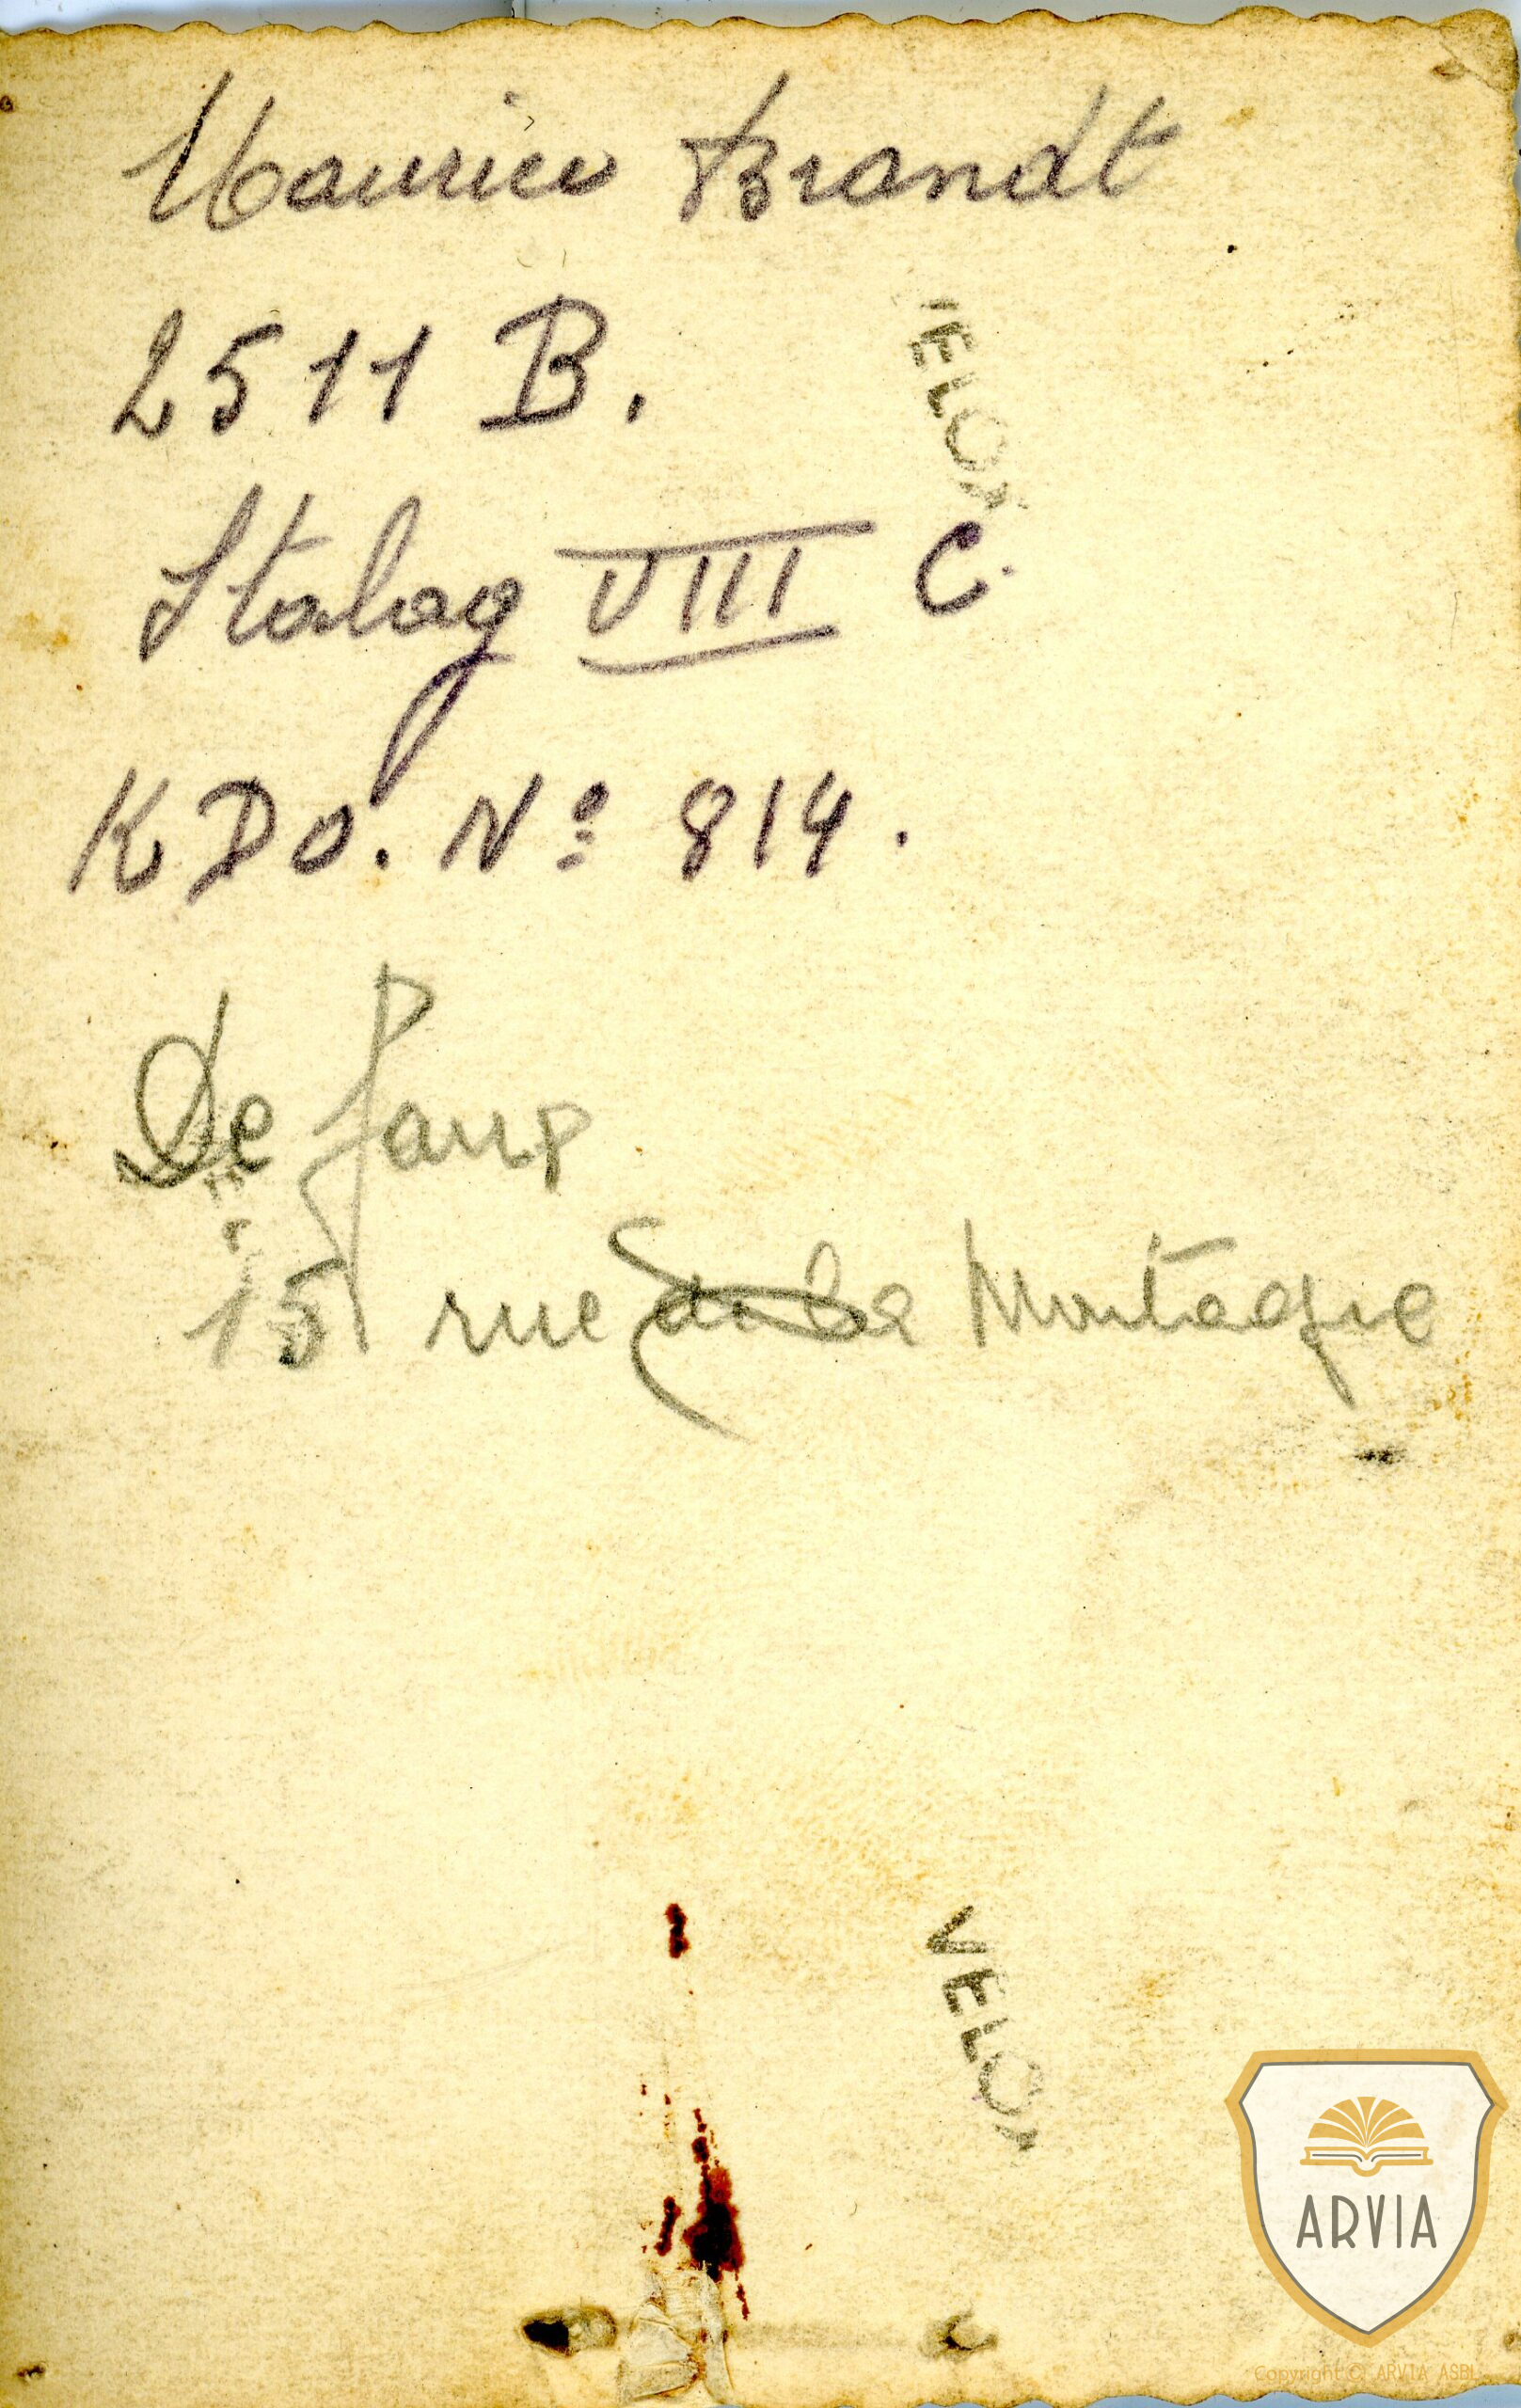 Maurice Brandt
2511 B.
VELOX
Stalag VIII C.
KDO. Nº 814.
De
15 rue de la Montagne
VELOX
ARVIA
Copyright © ARVIA ASBL